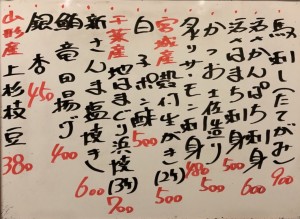 馬刺し(たてがみ) 900
活かんぱち刺身 600
活まこち刺身 500
かつお土佐造り 500
タイリサーモン刺身 480
宮城産 殻付生がき(2ヶ) 500
白子ポン酢 500
千葉産 地はまぐり浜焼(3ヶ) 700
新さんま塩焼き 600
鯖竜田揚げ 400
銀杏 450
山形産 上杉枝豆 380